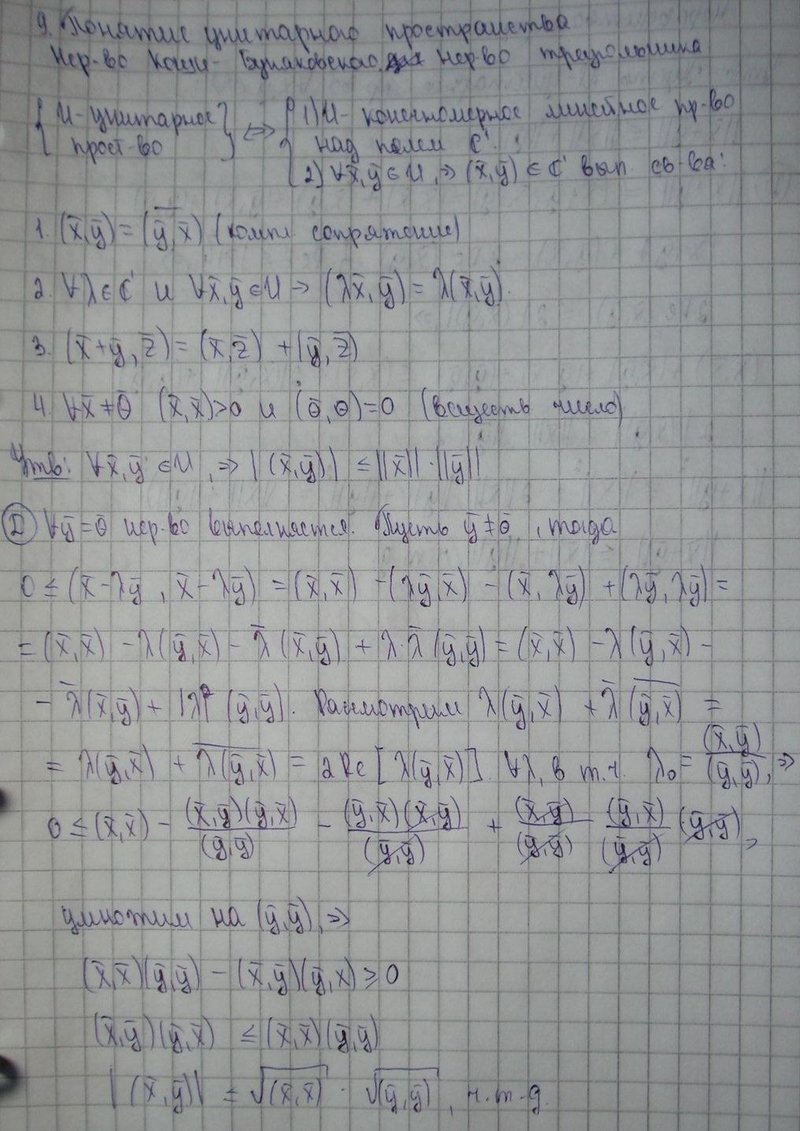 9. Понятие унитарного пространства
Нер-во Коши-Буняковского, нер-во треугольника
{U-унитарное прост-во} ⇔ {1) U - конечномерное линейное пр-во
над полем ℂ.
2) ∀x̄,ȳ∈U, ⇒ (x̄,ȳ) ∈ ℂ вып. св-ва:
1. (x̄,ȳ) = \overline{(ȳ,x̄)} (компл. сопряжение)
2. ∀λ∈ℂ и ∀x̄,ȳ∈U ⇒ (λx̄,ȳ) = λ(x̄,ȳ).
3. (x̄+ȳ, z̄) = (x̄,z̄) + (ȳ,z̄)
4. ∀x̄≠θ̄ (x̄,x̄)>0 и (θ̄,θ)=0 (веществ число)
Утв: ∀x̄,ȳ ∈U, ⇒ |(x̄,ȳ)| ≤ ||x̄||·||ȳ||
Д ∀ȳ=θ̄ нер-во выполняется. Пусть ȳ≠θ̄, тогда
0 ≤ (x̄-λȳ, x̄-λȳ) = (x̄,x̄) - (λȳ,x̄) - (x̄,λȳ) + (λȳ,λȳ) =
= (x̄,x̄) - λ(ȳ,x̄) - λ̄(x̄,ȳ) + λ·λ̄(ȳ,ȳ) = (x̄,x̄) - λ(ȳ,x̄) -
- λ̄(x̄,ȳ) + |λ|²(ȳ,ȳ). Рассмотрим λ(ȳ,x̄) + λ̄\overline{(ȳ,x̄)} =
= λ(ȳ,x̄) + \overline{λ(ȳ,x̄)} = 2Re[λ(ȳ,x̄)] ∀λ, в т.ч. λ₀ = (x̄,ȳ)/(ȳ,ȳ), ⇒
0 ≤ (x̄,x̄) - (x̄,ȳ)(ȳ,x̄)/(ȳ,ȳ) - (ȳ,x̄)(x̄,ȳ)/(ȳ,ȳ) + (x̄,ȳ)/(ȳ,ȳ) (ȳ,x̄)/(ȳ,ȳ) (ȳ,ȳ),
умножим на (ȳ,ȳ), ⇒
(x̄,x̄)(ȳ,ȳ) - (x̄,ȳ)(ȳ,x) ≥ 0
(x̄,ȳ)(ȳ,x̄) ≤ (x̄,x̄)(ȳ,ȳ)
|(x̄,ȳ)| ≤ √(x̄,x̄) · √(ȳ,ȳ), ч.т.д.